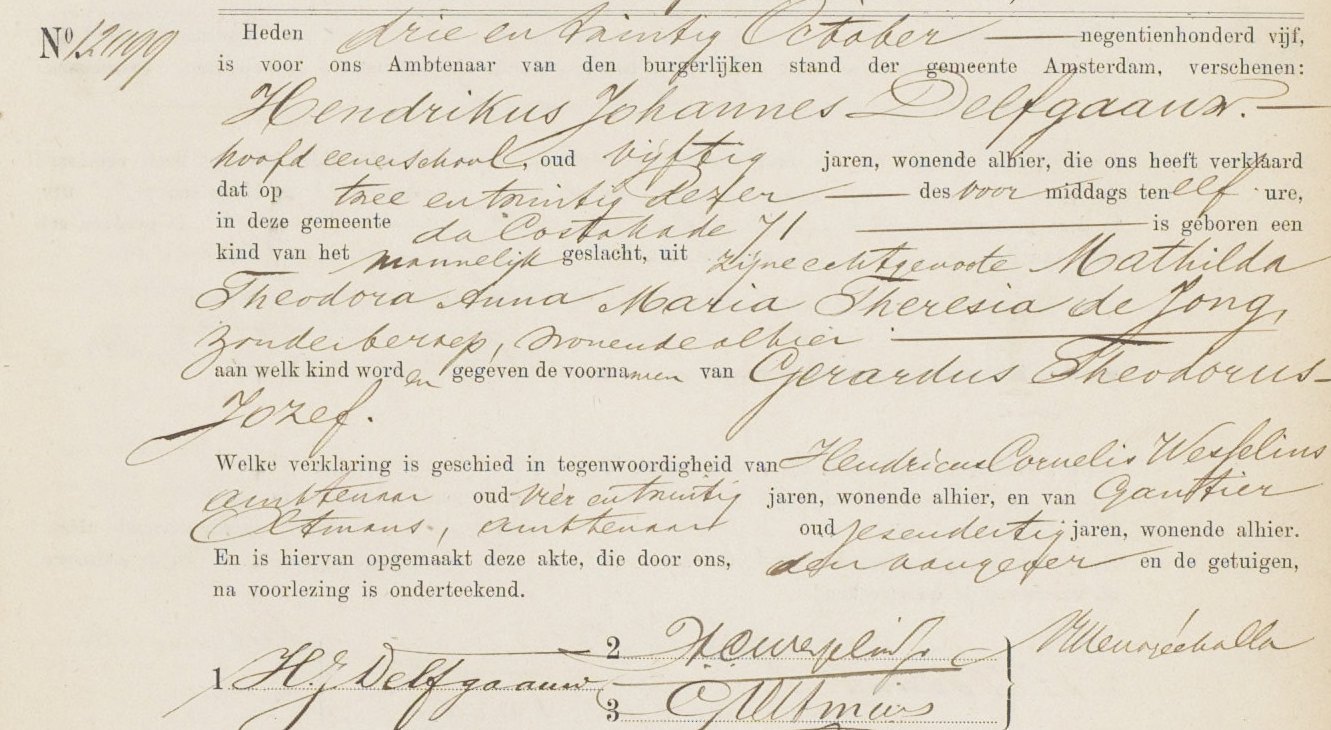 No. 12199 Heden drie en twintig October negentienhonderd vijf,
is voor ons Ambtenaar van den burgerlijken stand der gemeente Amsterdam, verschenen:
Hendrikus Johannes Delfgaauw.
hoofd eener school, oud vijftig jaren, wonende alhier, die ons heeft verklaard
dat op twee en twintig dezer des voor middags ten elf ure,
in deze gemeente da Costakade 71 is geboren een
kind van het mannelijk geslacht, uit zijne echtgenoote Mathilda
Theodora Anna Maria Theresia de Jong,
zonder beroep, wonende alhier
aan welk kind worden gegeven de voornamen van Gerardus Theodorus
Jozef.
Welke verklaring is geschied in tegenwoordigheid van Hendricus Cornelis Wesselius
ambtenaar oud vier en twintig jaren, wonende alhier, en van Gautier
Oltmans, ambtenaar oud zesendertig jaren, wonende alhier.
En is hiervan opgemaakt deze akte, die door ons, den aangever en de getuigen,
na voorlezing is onderteekend.
1 H.J. Delfgaauw
2 H.C. Wesselius
3 G. Oltmans